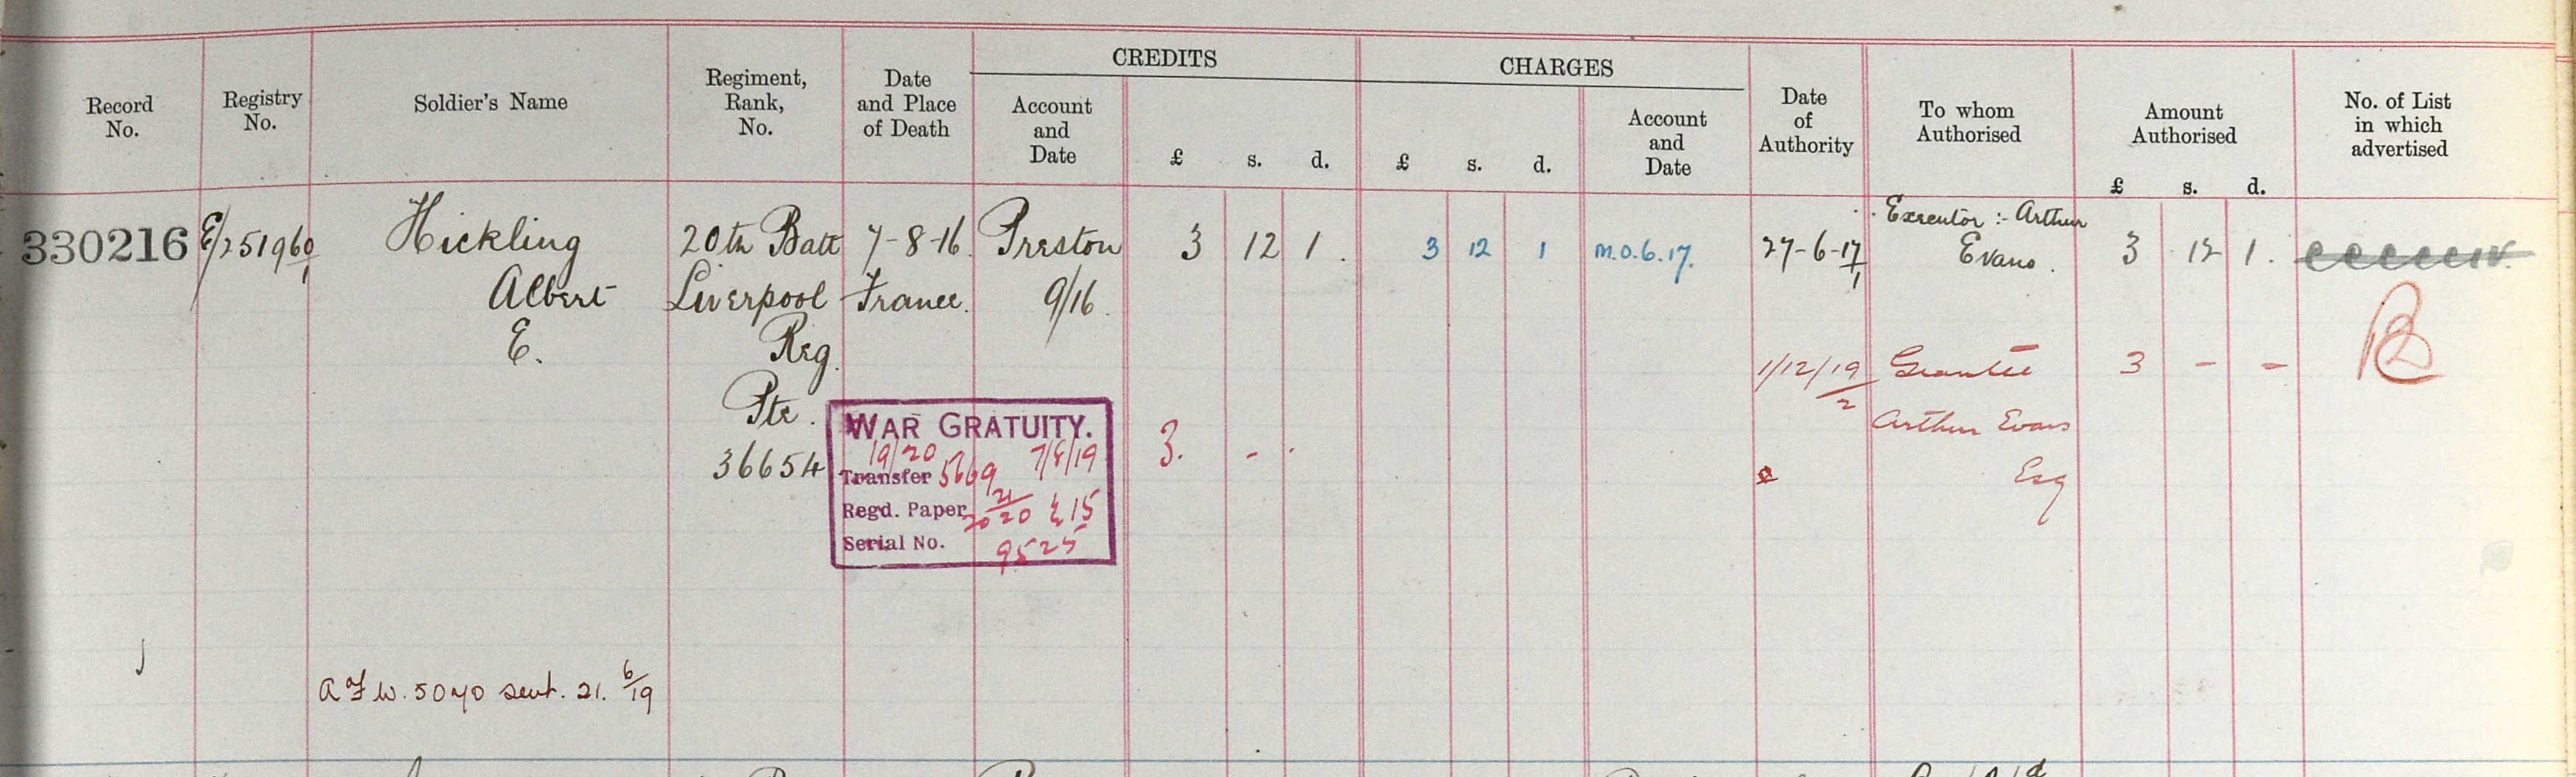 CREDITS
CHARGES
Record No.
Registry No.
Soldier's Name
Regiment, Rank, No.
Date and Place of Death
Account and Date
£ s. d.
£ s. d.
Account and Date
Date of Authority
To whom Authorised
Amount Authorised
£ s. d.
No. of List in which advertised
330216 E/251960/1 Hickling 20th Batt 7-8-16 Preston 3 12 1 3 12 1 m.o.6.17. 27-6-17/1 Executor :- Arthur Evans. 3 12 1.
Albert Liverpool France. 9/16.
E. Reg.
1/12/19/2 Grantee 3 - -
Pte.
Arthur Evans
WAR GRATUITY.
36654
19/20 7/8/19 3. - .
Transfer 5669
Esq
Regd. Paper £15
Serial No. 9525
A F W. 5070 sent. 21. 6/19